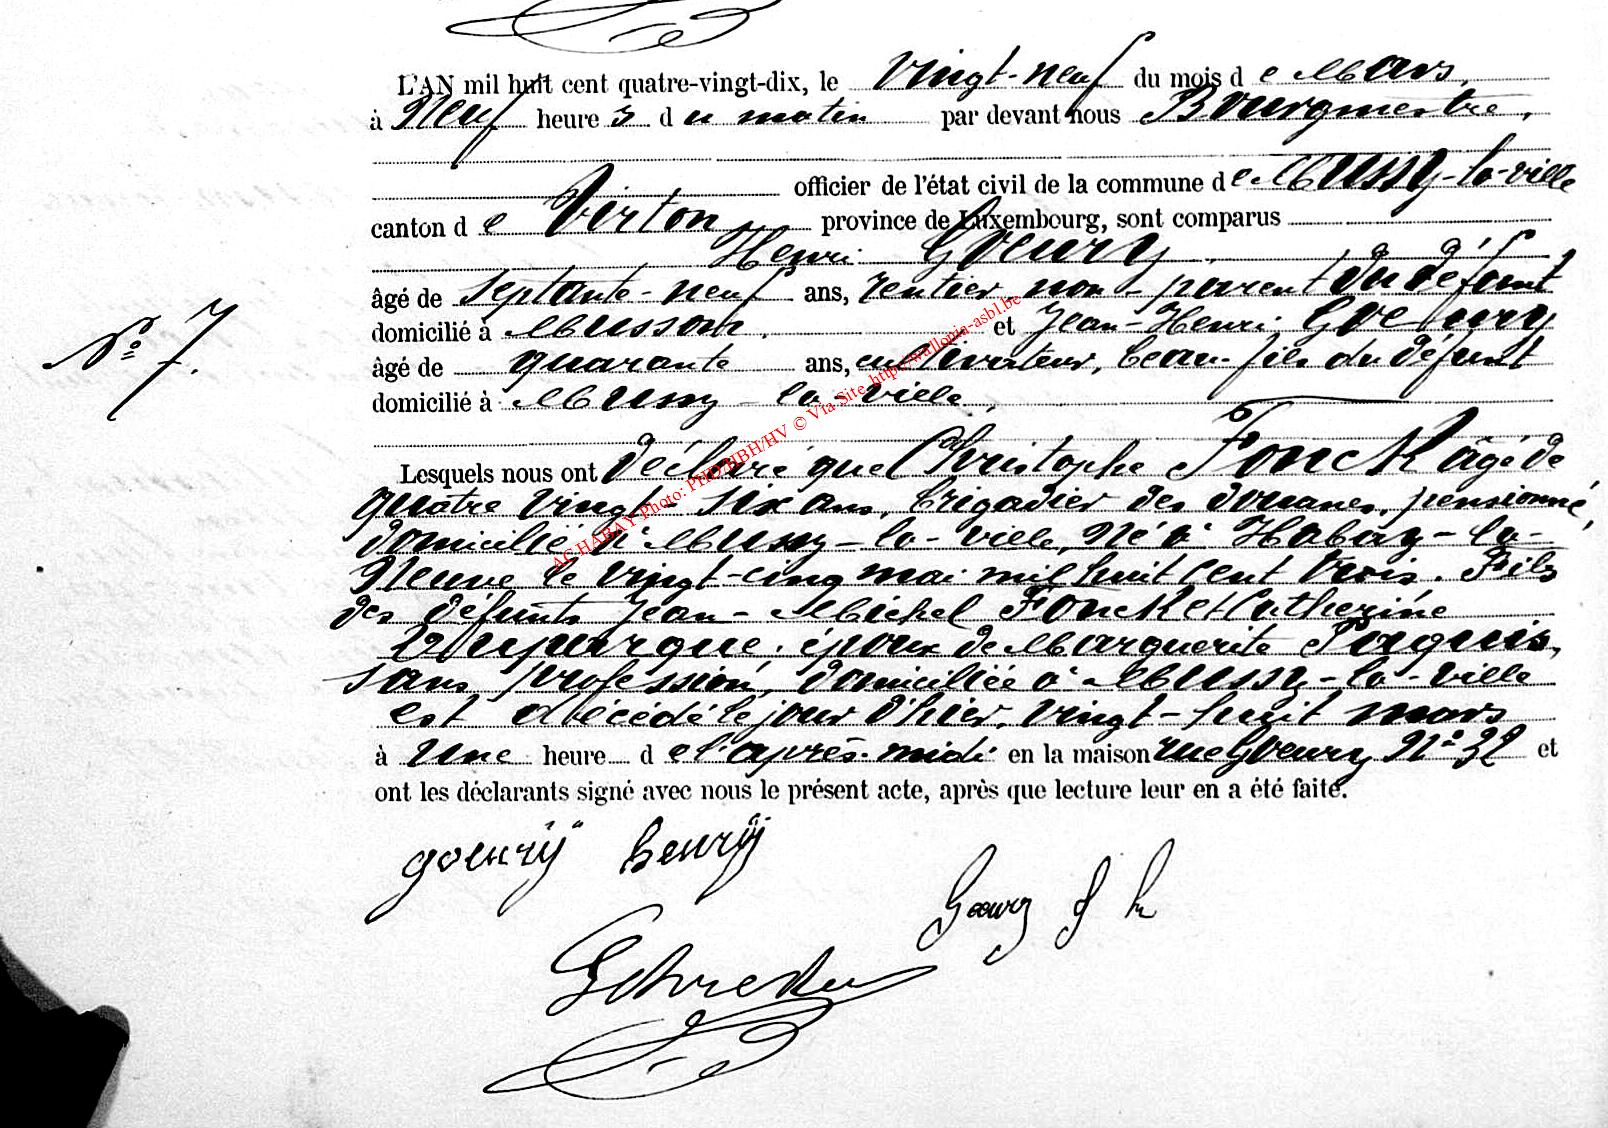 L'AN mil huit cent quatre-vingt-dix, le Vingt-neuf du mois de Mars,
à Neuf heures du matin par devant nous Bourgmestre,
officier de l'état civil de la commune de Mussy-la-ville
canton de Virton province de Luxembourg, sont comparus
Henri Goeury
âgé de septante-neuf ans, rentier, non-parent du défunt
domicilié à Musson, et Jean-Henri Goeury
âgé de quarante ans, cultivateur, beau-fils du défunt
domicilié à Mussy-la-ville,
N° 7.
Lesquels nous ont déclaré que Christophe Fonck âgé de
quatre vingt-six ans, brigadier des douanes, pensionné,
domicilié à Mussy-la-ville, né à Habay-la-
Neuve le vingt-cinq mai mil huit cent trois. Fils
des défunts Jean-Michel Fonck et Catherine
époux de Marguerite
sans profession, domiciliée à Mussy-la-ville
est décédé le jour d'hier, vingt-huit mars
à une heure de l'après-midi en la maison rue Goeury N° 32 et
ont les déclarants signé avec nous le présent acte, après que lecture leur en a été faite.
goeurÿ henrÿ
Goeury J h
AC HABAY Photo: PHD/HBH/HV © Via Site http://wallonia-asbl.be